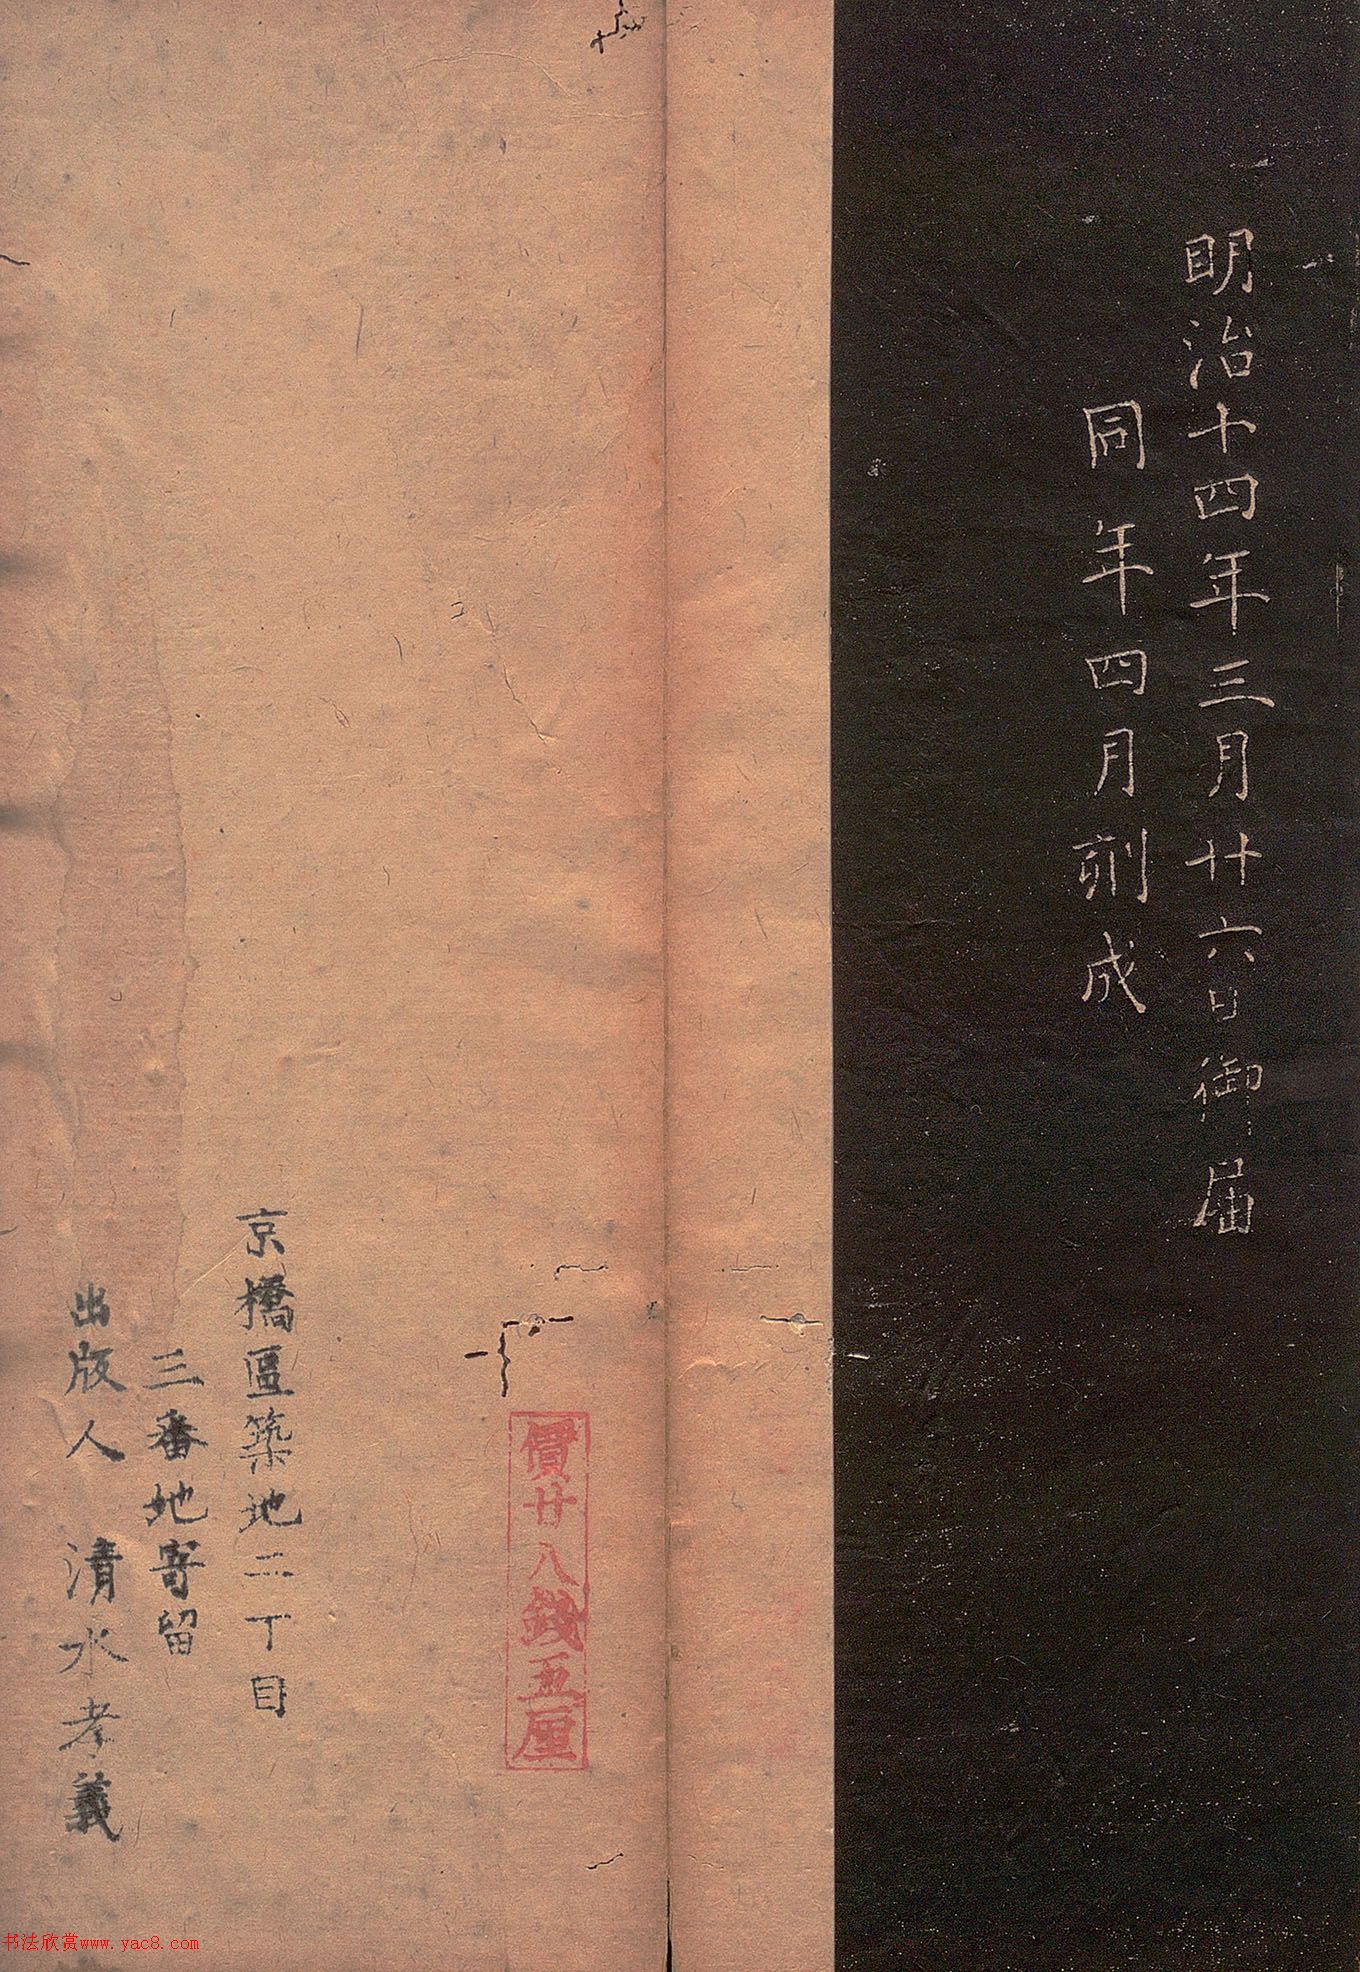 明治十四年三月廿六日御届
同年四月刻成
價廿八錢五厘
京橋區築地二丁目
三番地寄留
出版人 清水孝義
书法欣赏www.yac8.com